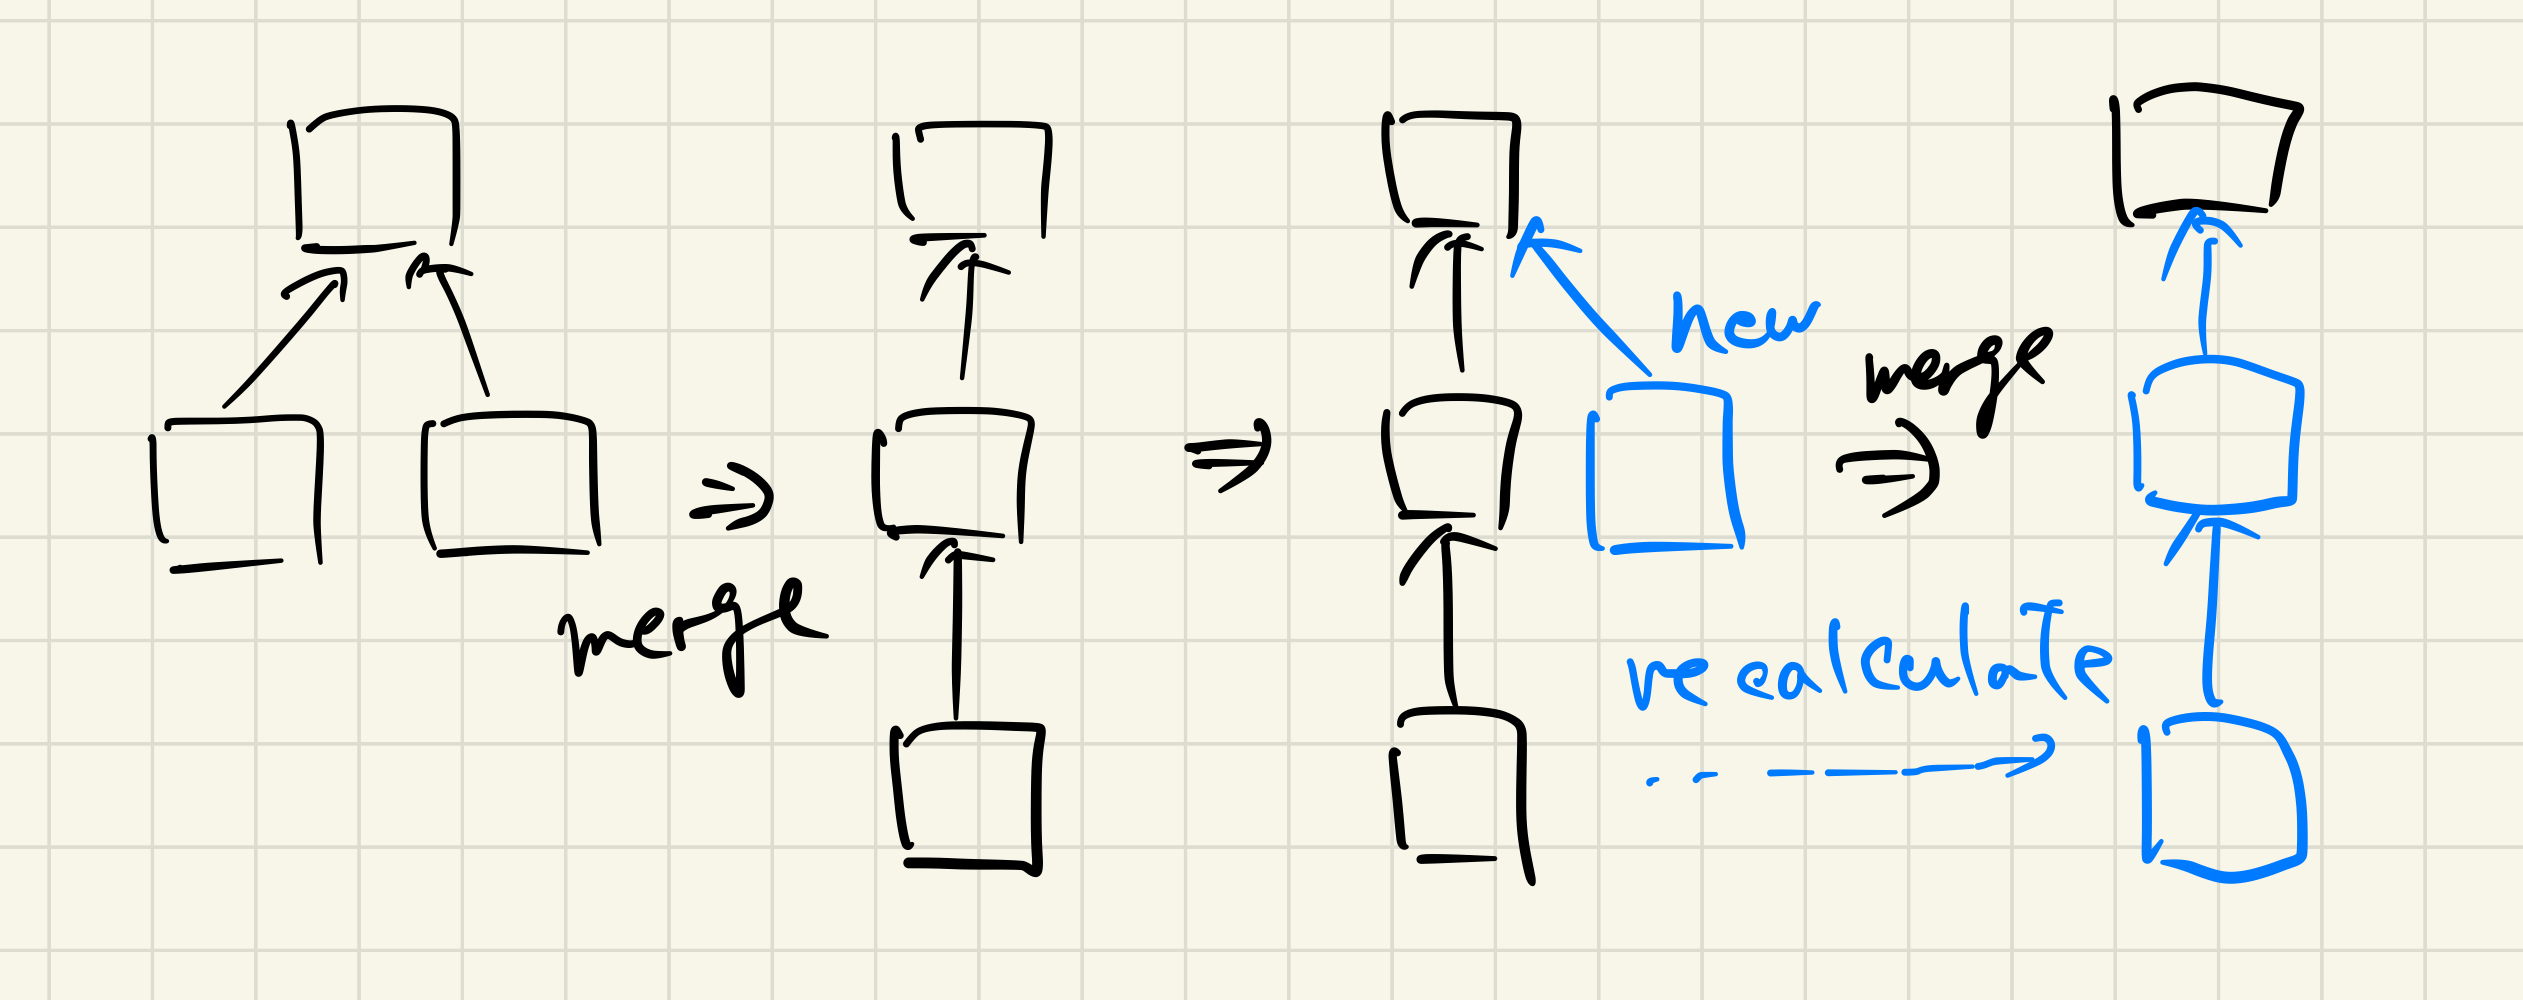 merge
new
merge
recalculate